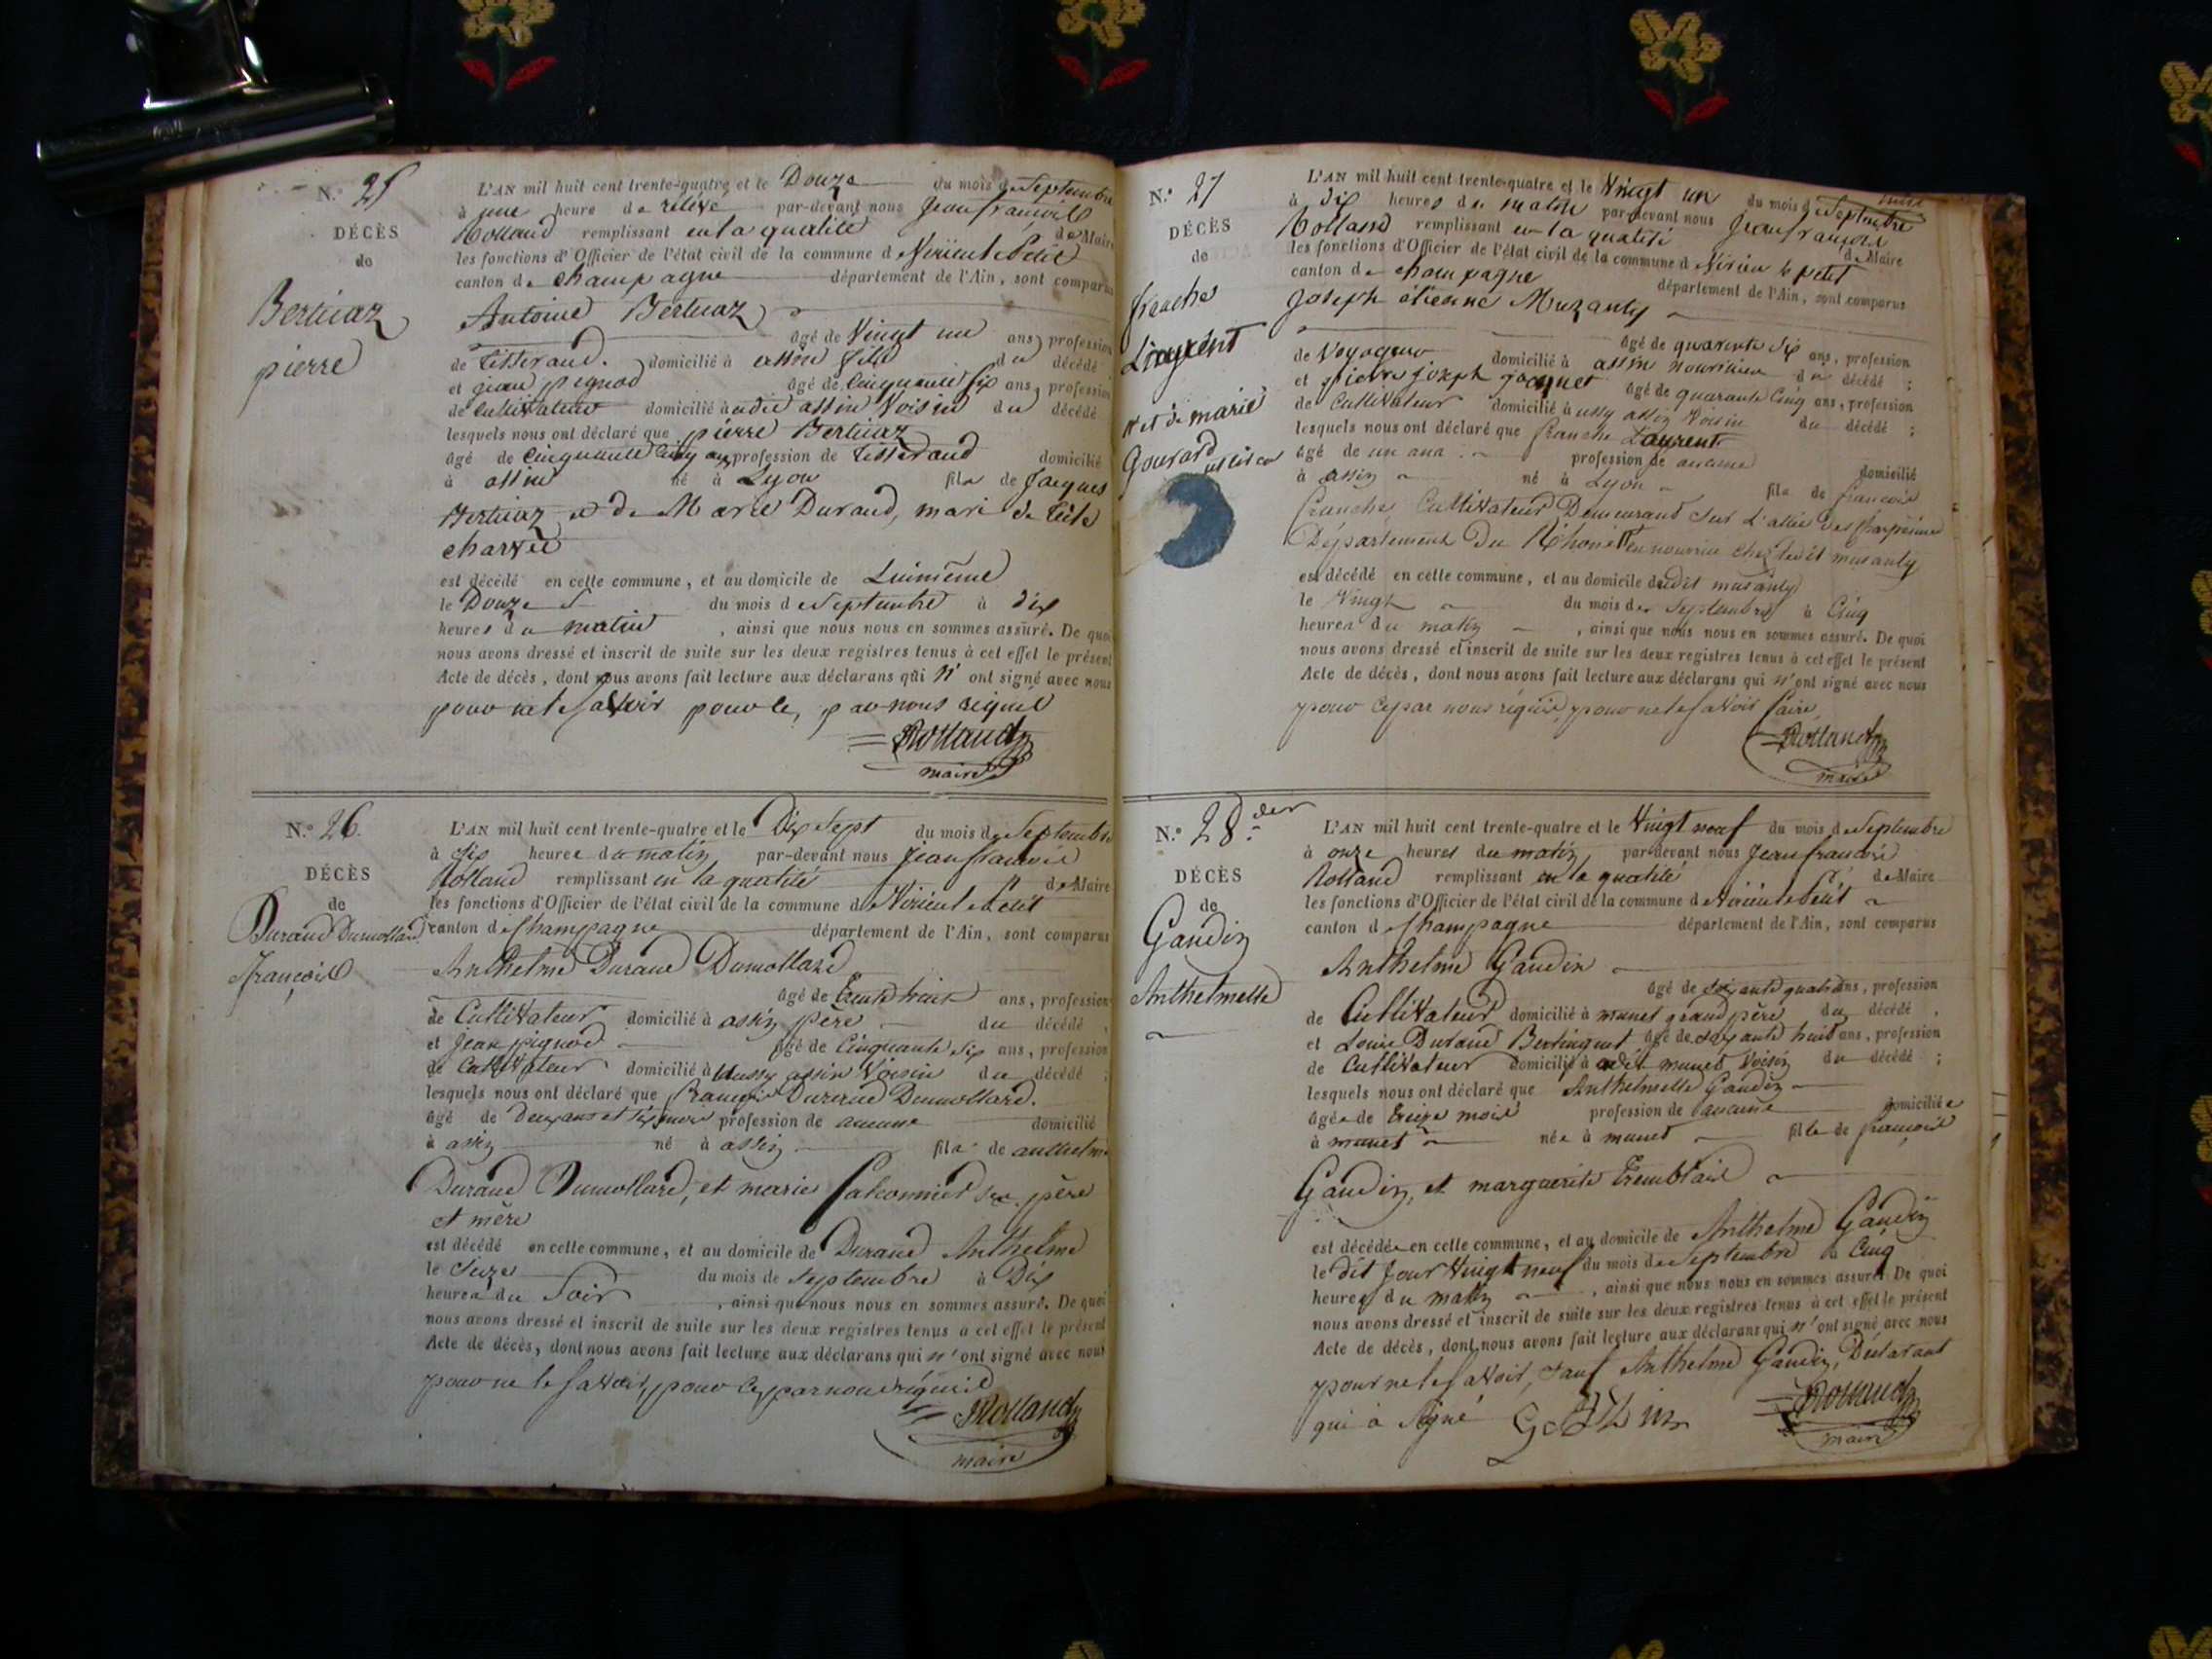 N.° 25
DÉCÈS
de
Bertuaz
pierre
L'AN mil huit cent trente-quatre et le Douze du mois de Septembre
à une heure de relevé par-devant nous Jean françois
Rolland remplissant en la qualité de Maire
les fonctions d'Officier de l'état civil de la commune de Virieu le Petit
canton de champagne département de l'Ain, sont comparus
Antoine Bertuaz
âgé de Vingt un ans, profession
de tisserand. domicilié à assin fils du décédé
et jean pignod âgé de Cinquante six ans, profession
de cultivateur domicilié à assin Voisin du décédé
lesquels nous ont déclaré que pierre Bertuaz
âgé de Cinquante cinq ans profession de tisserand domicilié
à assin né à Lyon fils de Jacques
Bertuaz et de Marie Durand, mari de
est décédé en cette commune, et au domicile de Luimême
le Douze du mois de Septembre à dix
heures du matin, ainsi que nous nous en sommes assuré. De quoi
nous avons dressé et inscrit de suite sur les deux registres tenus à cet effet le présent
Acte de décès, dont nous avons fait lecture aux déclarans qui n' ont signé avec nous
pour ne le savoir pour ce, par nous requis
Rolland
maire
N.° 26
DÉCÈS
de
Durand Dumollard
françois
L'AN mil huit cent trente-quatre et le Dix Sept du mois de Septembre
à six heures du matin par-devant nous Jean francois
Rolland remplissant en la qualité de Maire
les fonctions d'Officier de l'état civil de la commune de Virieu le Petit
canton de Champagne département de l'Ain, sont comparus
Anthelme Durand Dumollard
âgé de trente huit ans, profession
de Cultivateur domicilié à assin père du décédé,
et Jean pignod âgé de Cinquante six ans, profession
de Cultivateur domicilié à assin Voisin du décédé;
lesquels nous ont déclaré que François Durand Dumollard.
âgé de deux ans et six mois profession de aucune domicilié
à assin né à assin fils de anthelme
Durand Dumollard, et marie falconnier ses père
et mère
est décédé en cette commune, et au domicile de Durand Anthelme
le seize du mois de septembre à Dix
heures du Soir, ainsi que nous nous en sommes assuré. De quoi
nous avons dressé et inscrit de suite sur les deux registres tenus à cet effet le présent
Acte de décès, dont nous avons fait lecture aux déclarans qui n' ont signé avec nous
pour ne le savoir, pour ce par nous requis
Rolland
maire
N.° 27
DÉCÈS
de
franche
Laurent
et de marie
Gourard
L'AN mil huit cent trente-quatre et le Vingt un du mois de Septembre
à dix heures du matin par-devant nous Jean françois
Rolland remplissant en la qualité de Maire
les fonctions d'Officier de l'état civil de la commune de Virieu le petit
canton de champagne département de l'Ain, sont comparus
Joseph étienne Muzanty
âgé de quarente six ans, profession
de Voyageur domicilié à assin nourricier du décédé;
et pierre joseph jacquet âgé de quarante Cinq ans, profession
de Cultivateur domicilié à assin Voisin du décédé;
lesquels nous ont déclaré que franche Laurent
âgé de un ans profession de aucune domicilié
à assin né à Lyon fils de françois
franche Cultivateur Demeurant sur L'allée des charpennes
Département du Rhône et en nourrice chez ledit musanty
est décédé en cette commune, et au domicile dudit musanty
le Vingt du mois de Septembre à Cinq
heures du matin, ainsi que nous nous en sommes assuré. De quoi
nous avons dressé et inscrit de suite sur les deux registres tenus à cet effet le présent
Acte de décès, dont nous avons fait lecture aux déclarans qui n' ont signé avec nous
pour ce par nous requis, pour ne le savoir faire
Rolland
maire
N.° 28 der
DÉCÈS
de
Gaudin
Anthelmette
L'AN mil huit cent trente-quatre et le Vingt neuf du mois de Septembre
à onze heures du matin, par-devant nous Jean francois
Rolland remplissant en la qualité de Maire
les fonctions d'Officier de l'état civil de la commune de Virieu le Petit
canton de Champagne département de l'Ain, sont comparus
Anthelme Gaudin
âgé de soixante quatre ans, profession
de Cultivateur domicilié à munet grand père du décédé,
et Louis Durand Bertinguet âgé de soixante huit ans, profession
de Cultivateur domicilié à udit munet Voisin du décédé;
lesquels nous ont déclaré que Anthelmette Gaudin
âgée de treize mois profession de aucune domiciliée
à munet née à munet fille de françois
Gaudin, et marguerite Tremblais
est décédée en cette commune, et au domicile de Anthelme Gaudin
le dit Jour Vingt neuf du mois de Septembre à Cinq
heures du matin, ainsi que nous nous en sommes assuré. De quoi
nous avons dressé et inscrit de suite sur les deux registres tenus à cet effet le présent
Acte de décès, dont nous avons fait lecture aux déclarans qui n' ont signé avec nous
pour ne le savoir, sauf Anthelme Gaudin, Déclarant
qui à signé
Rolland
maire